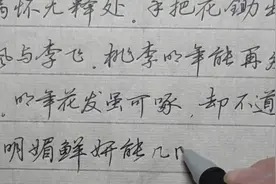 满怀无释处。手把花锄出
飘与李飞.桃李明年能再
。明年花发虽可啄,却不道
明媚鲜妍能几